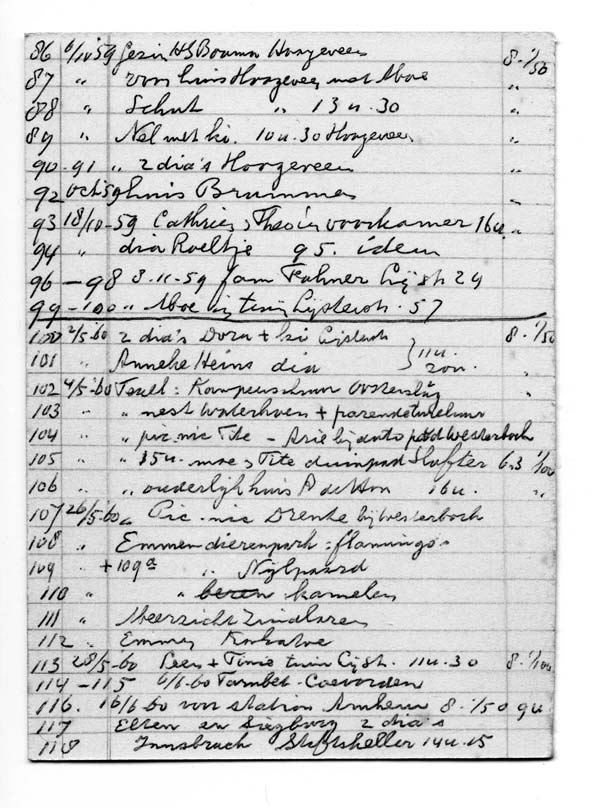 86 6/10 59 Gezin HS Bouma Hoogeveen 8. 1/50
87 " voor huis Hoogeveen met Moe "
88 " Schut " 13 u. 30 "
89 " Nel met ki. 10 u. 30 Hoogeveen "
90-91 " 2 dia's Hoogeveen "
92 oct 59 huis Brummen "
93 18/10-59 Cathrien, Theo in voorkamer 16 u. "
94 " dia Roeltje 95. idem
96 - 98 3-11-59 fam
99 - 100 " Moe bij tuin 57
100 2/5-60 2 dia's Dora + ki 8. 1/50
101 " Anneke Heins dia 11 u. 20 u. "
102 4/5-60 Texel: "
103 " " nest waterhoen +
104 " " pic nic Tite - Arie bij auto Westerbork
105 " " 15 u. moe, Tite duinpad Slufter 6.3 1/100
106 " " ouderlijk huis 16 u. "
107 26/5-60 " Pic-nic Drenthe bij Westerbork
108 " Emmen dierenpark: flamingo's
109 " + 109a " Nijlpaard
110 " " kamelen
111 " Meerzicht Zuidlaren
112 " Emmen
113 28/5-60 + Tinie tuin 11 u. 30 8. 1/100
114 - 115 6/6-60 Coevorden
116. 16/6-60 voor station Arnhem 8. 1/50 9 u.
117 Elten en Siegburg 2 dia's
118 Innsbruck Stiftskeller 14 u. 15